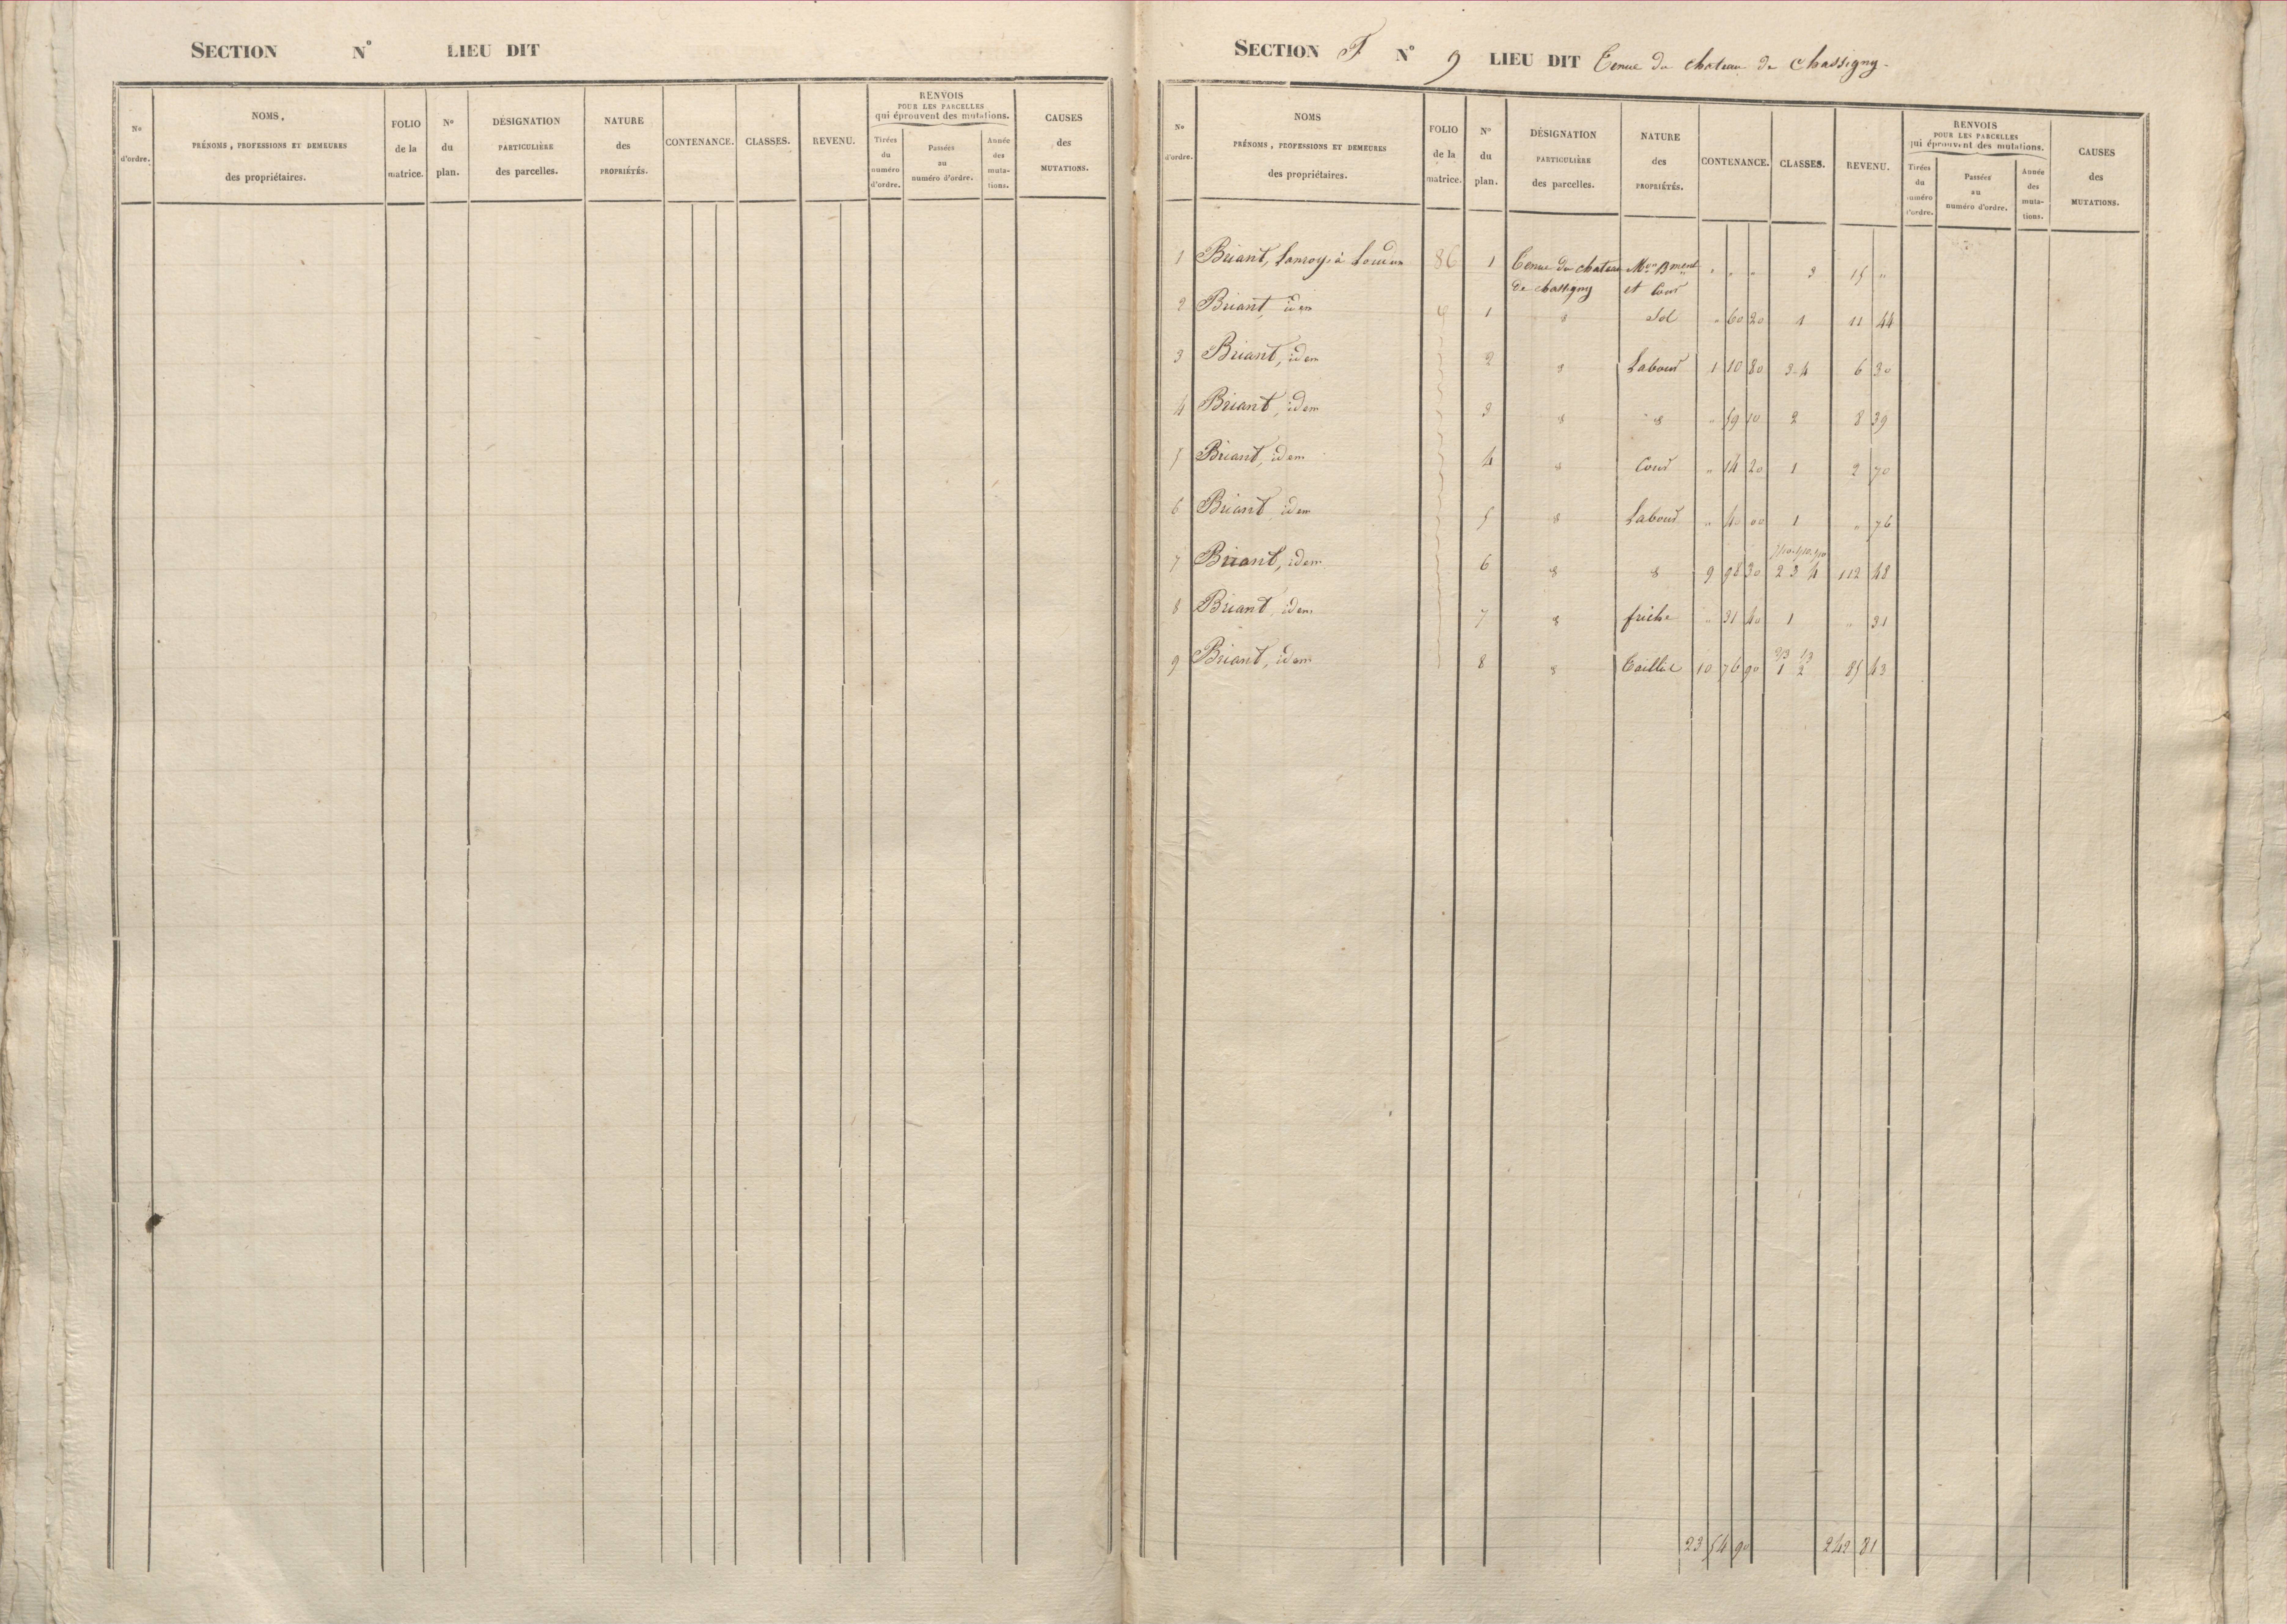 SECTION N° LIEU DIT
N° d'ordre.
NOMS, PRÉNOMS, PROFESSIONS ET DEMEURES des propriétaires.
FOLIO de la matrice.
N° du plan.
DÉSIGNATION PARTICULIÈRE des parcelles.
NATURE des PROPRIÉTÉS.
CONTENANCE.
CLASSES.
REVENU.
RENVOIS POUR LES PARCELLES qui éprouvent des mutations.
Tirées du numéro d'ordre.
Passées au numéro d'ordre.
Année des mutations.
CAUSES des MUTATIONS.
SECTION F N° 9 LIEU DIT Tenue du chateau de Chassigny
N° d'ordre.
NOMS PRÉNOMS, PROFESSIONS ET DEMEURES des propriétaires.
FOLIO de la matrice.
N° du plan.
DÉSIGNATION PARTICULIÈRE des parcelles.
NATURE des PROPRIÉTÉS.
CONTENANCE.
CLASSES.
REVENU.
RENVOIS POUR LES PARCELLES qui éprouvent des mutations.
Tirées du numéro d'ordre.
Passées au numéro d'ordre.
Année des mutations.
CAUSES des MUTATIONS.
1 Briant, à 86 1 Tenue du chateau Mon Bment " " " 3 15 "
de chassigny et Cour
2 Briant, idem 1 " Sol " 60 20 1 11 44
3 Briant, idem 2 " Labour 1 10 80 3-4 6 30
4 Briant, idem 3 " " " 59 10 2 8 39
5 Briant, idem 4 " Cour " 14 20 1 2 70
6 Briant, idem 5 " Labour " 40 00 1 " 76
7 Briant, idem 6 " " 9 98 30 2 3 4 112 48
8 Briant, idem 7 " friche " 31 40 1 " 31
2/3 1/3
9 Briant, idem 8 " Taillis 10 76 90 1 2 85 43
23 54 90 242 81